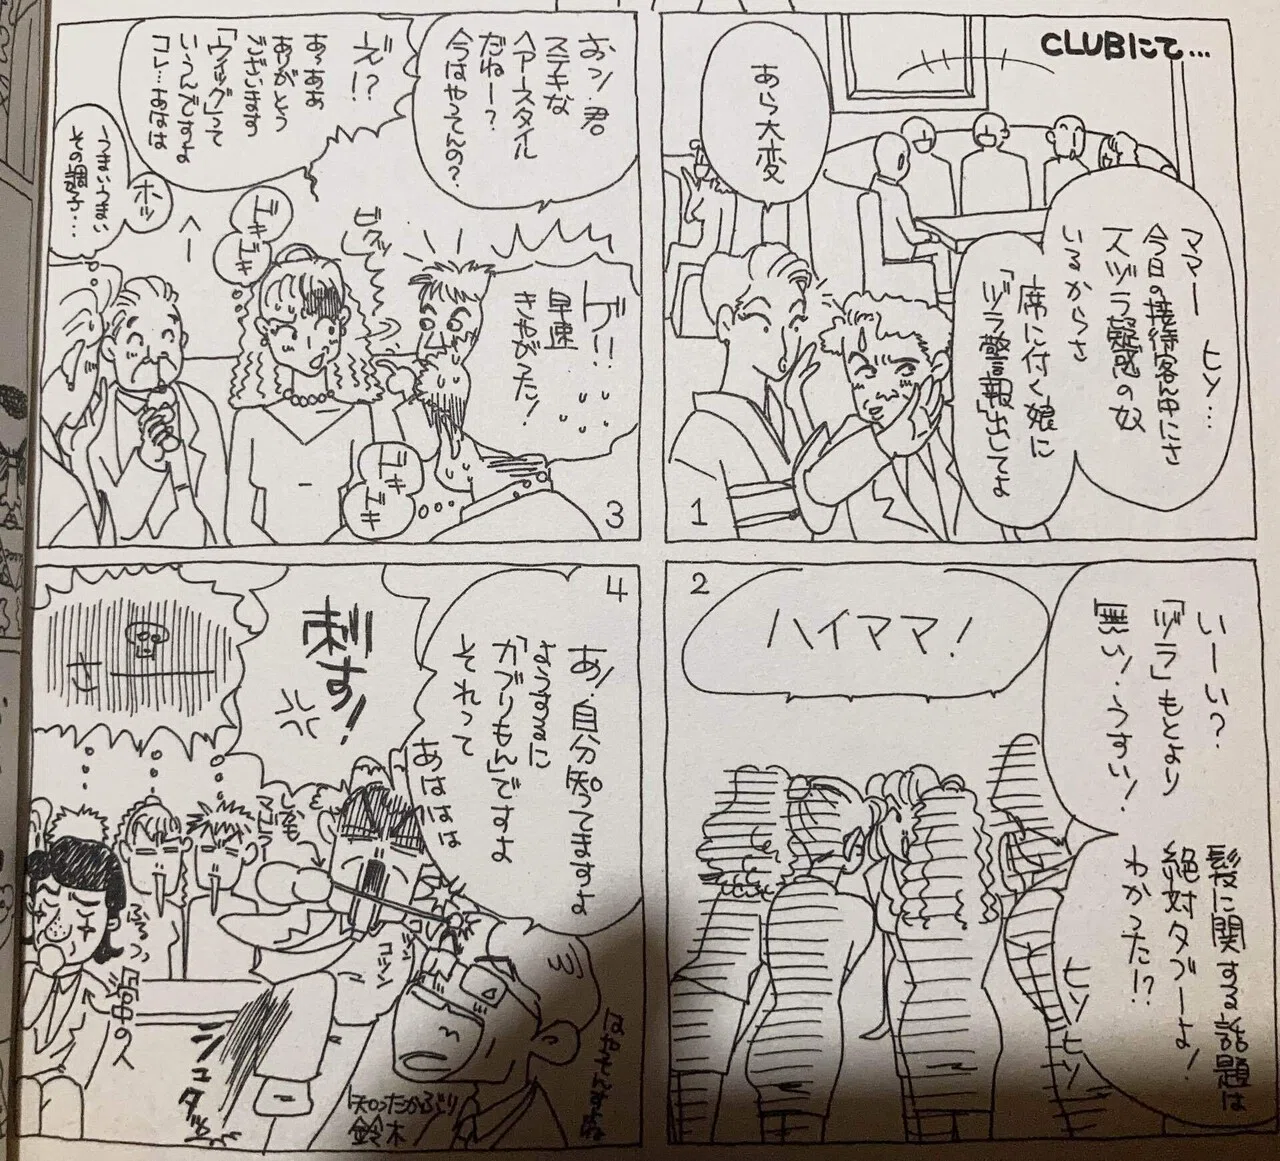 CLUBにて…
ママー ヒソ…
今日の接待客ん中にさ
一人ヅラ疑惑の奴
いるからさ
席に付く娘に
「ヅラ警報」出してよ
あら大変
1
2
いーい?
「ヅラ」もとより
「無い!うすい!
髪に関する話題は
絶対タブーよ!
わかった!?
ヒソヒソ
ハイママ!
おン君
ステキな
ヘアースタイル
だねー?
今はやってんの?
ゲ!!
早速
きやがった!
ビクッ
ドキ
ドキ
ドキ
ドキ
ズ!?
あ〜ああ
ありがとう
ございます
「ウィッグ」って
いうんですよ
コレ…あはは
へー
ホッ
うまいうまい
その調子…
3
4
あ!自分知ってますよ
ようするに
「かぶりもん」ですよ
それって
あははは
刺す!
さ
ふるっ
コツン
ジュタッ
知ったかぶり
鈴木